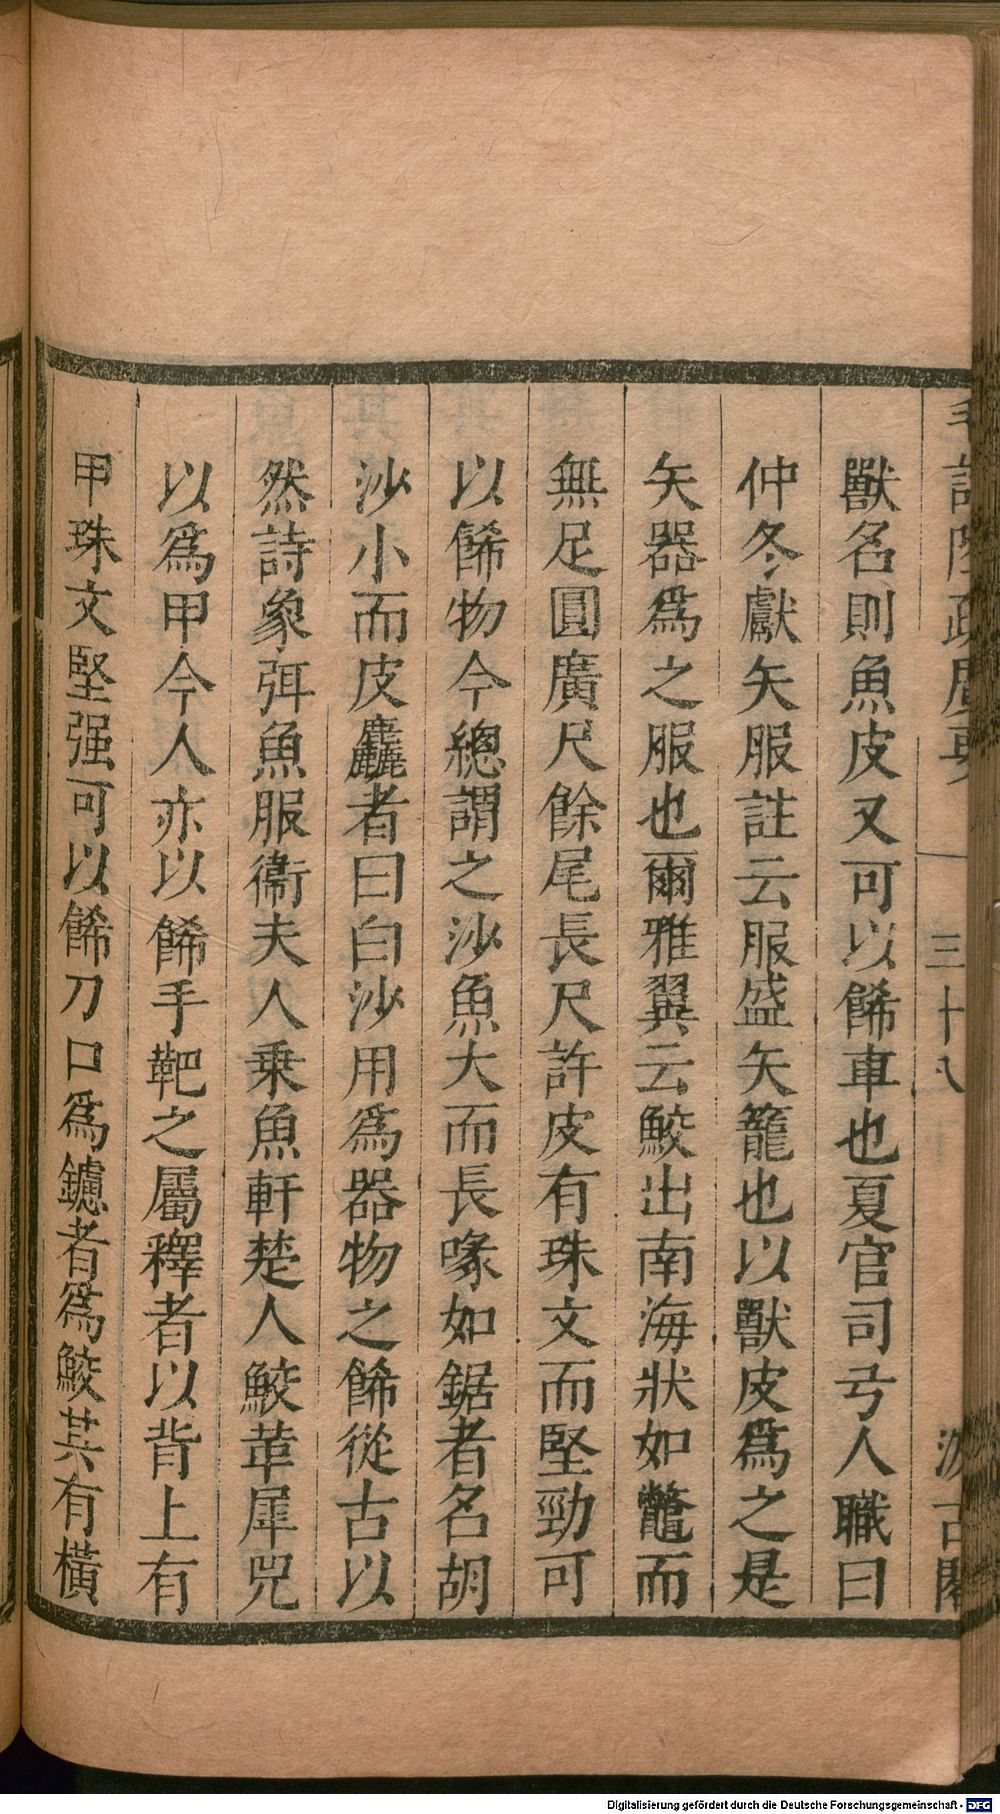 毛詩陸疏廣要 三十八 汲古閣
獸名則魚皮又可以餙車也夏官司弓人職曰
仲冬獻矢服註云服盛矢籠也以獸皮爲之是
矢器爲之服也爾雅翼云鮫出南海狀如鼈而
無足圓廣尺餘尾長尺許皮有珠文而堅勁可
以餙物今總謂之沙魚大而長喙如鋸者名胡
沙小而皮麤者曰白沙用爲器物之餙從古以
然詩象弭魚服衞夫人乗魚軒楚人鮫革犀兕
以爲甲今人亦以餙手靶之屬釋者以背上有
甲珠文堅强可以餙刀口爲鑢者爲鮫其有橫
Digitalisierung gefördert durch die Deutsche Forschungsgemeinschaft - DFG